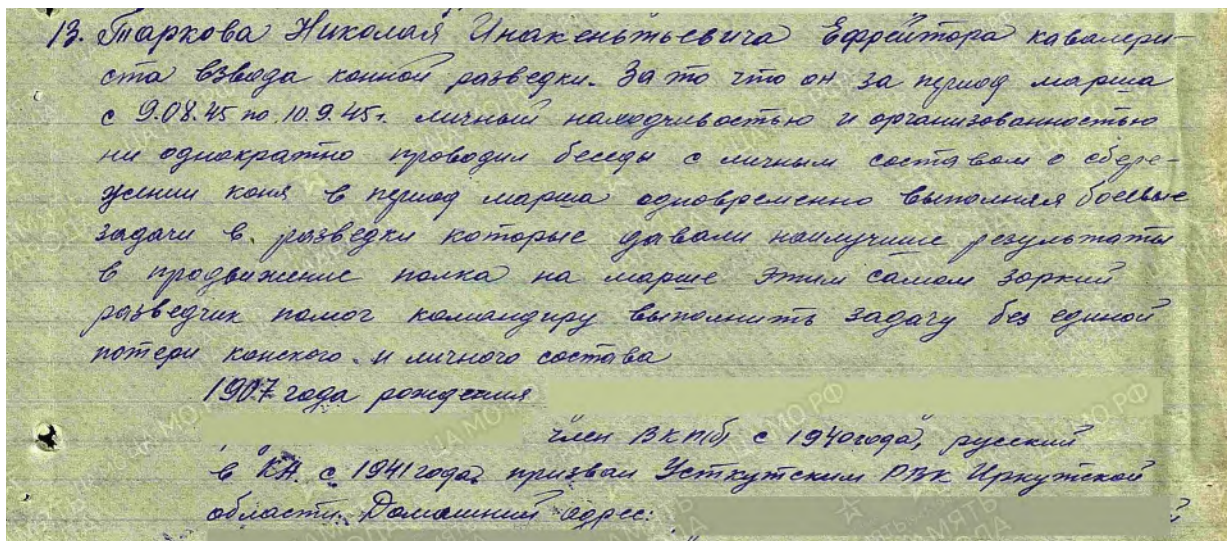 13. Таркова Николая Инакентьевича Ефрейтора кавалери-
ста взвода конной разведки. За то что он за период марша
с 9.08.45 по 10.9.45 г. личный находчивостью и организованностью
ни однократно проводил беседы с личным составом о сбере-
жении коня в период марша одновременно выполняя боевые
задачи в разведки которые давали наилучшие результаты
в продвижение полка на марше этим самом зоркий
разведчик помог командиру выполнить задачу без единой
потери конского. и личного состава
1907 года рождения
член ВКП(б) с 1940 года, русский
в КА. с 1941 года призван Усткутским РВК Иркутской
области. Домашний адрес: